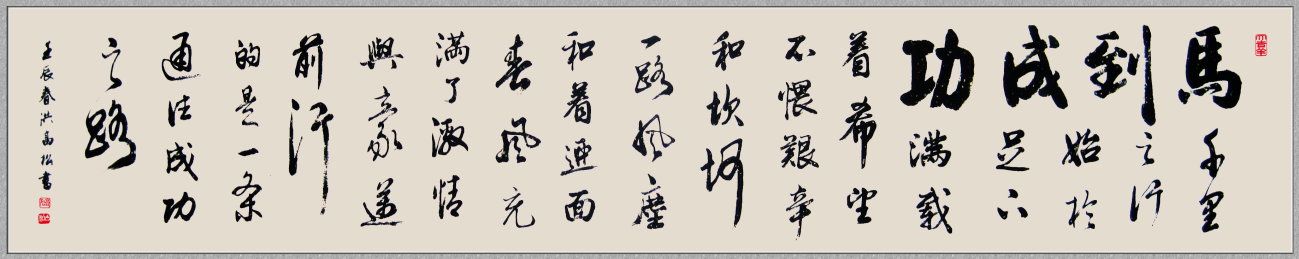 馬到成功
千里
之行
始於
足下
滿載
着希望
不惧艱辛
和坎坷
一路風塵
和着迎面
春風充
滿了激情
與豪邁
前行
的是一条
通往成功
之路
壬辰春洪高松書